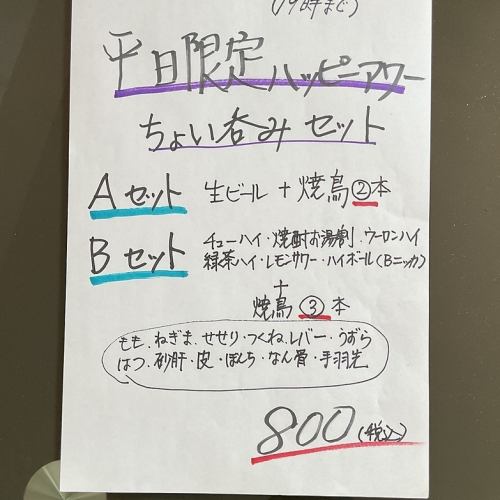 (19時まで)
平日限定ハッピーアワー
ちょい呑みセット
Aセット 生ビール + 焼鳥②本
Bセット チューハイ・焼酎お湯割・ウーロンハイ
緑茶ハイ・レモンサワー・ハイボール(Bニッカ)
+
焼鳥 ③ 本
もも、ねぎま、せせり・つくね、レバー・うずら
はつ、砂肝・皮・ぼんち・なん骨・手羽先
800(税込)